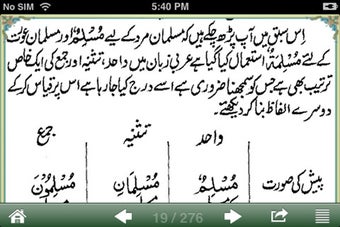 No SIM 5:40 PM
اِس سبق میں آپ پڑھ چکے ہیں کہ مسلمان مرد کے لیے مُسْلِمٌ اور مسلمان عورت
کے لئے مُسْلِمَةٌ استعمال کیا گیا ہے عربی زبان میں واحد، تثنیہ اور جمع کی ایک خاص
ترتیب بھی ہے جس کو سمجھنا ضروری ہے اسے درج کیا جا رہا ہے اس پر قیاس کر کے
دوسرے الفاظ بنا کر دیکھئے۔
واحد تثنیہ جمع
پیش کی صورت مُسْلِمٌ مُسْلِمَانِ مُسْلِمُوْنَ
19 / 276